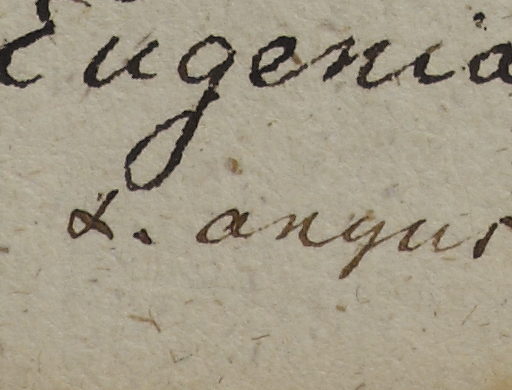 Eugenia
α. angus